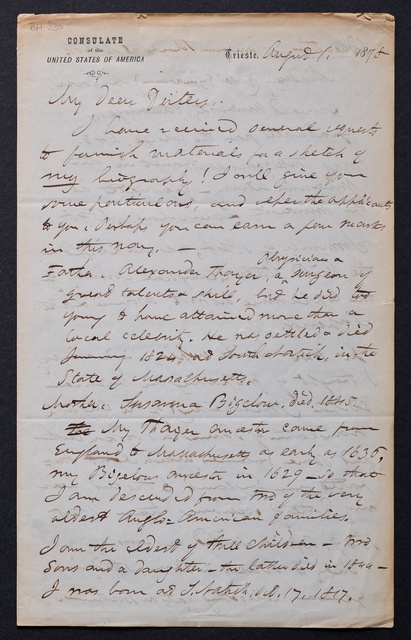 BH 230
CONSULATE
of the
UNITED STATES OF AMERICA
Trieste, August 1. 1878
My Dear Deiters,
I have received several requests
to furnish materials for a sketch of
my biography! I will give you
some particulars, and refer the applicants
to you. Perhaps you can earn a few marks
in this way. —
Physician &
Father. Alexander Thayer, a surgeon of
great talent & skill, but he died too
young to have attained more than a
local celebrity. He had settled & died
1824, at South Natick, in the
State of Massachusetts.
Mother. Susanna Bigelow, died 1845.
My Thayer ancestor came from
England to Massachusetts as early as 1636,
my Bigelow ancestor in 1629 – so that
I am descended from two of the very
oldest Anglo-American families.
I am the eldest of three children – two
sons and a daughter – the latter died in 1844 –
I was born at S. Natick, Oct. 17, 1817.